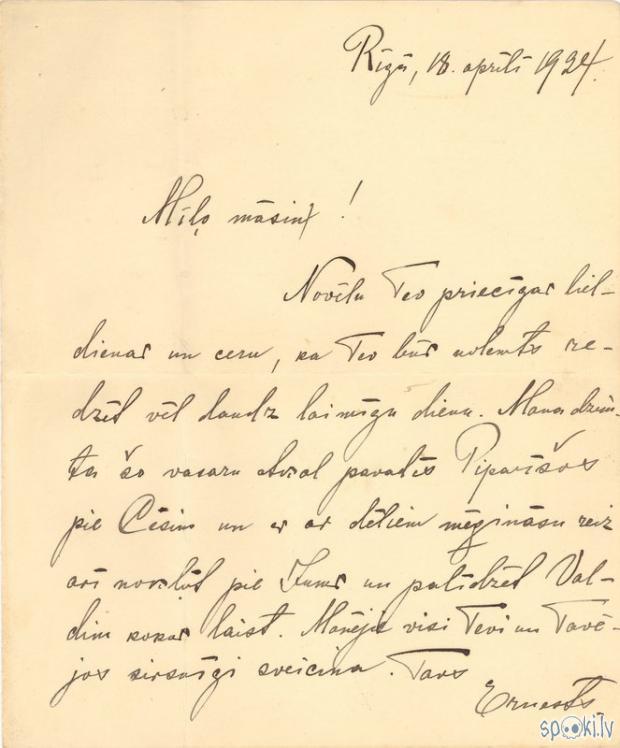 Rīgā, 18. aprīlī 1924.
Mīļo māsiņ!
Novēlu Tev priecīgas liel-
dienas un ceru, ka Tev būs nolemts re-
dzēt vēl daudz laimīgu dienu. Mana dzim-
ta šo vasaru atkal pavadīs Piparīšos
pie Cēsīm un es ar dēliem mēģināsu reiz
arī novilīt pie Jums un palīdzēt Val-
dim kokas laist. Manējie visi Tevi un Tavē-
jos sirsnīgi sveicina. Tavs
Ernests
spoki.lv